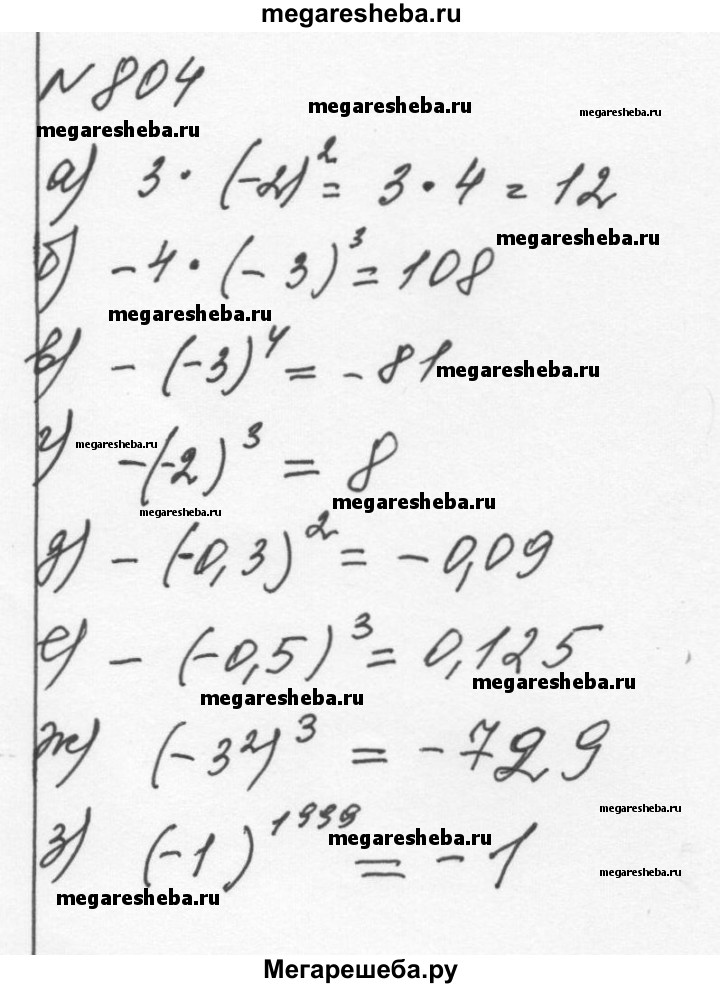 megaresheba.ru
№ 804
megaresheba.ru
megaresheba.ru
megaresheba.ru
а) 3 · (-2)² = 3 · 4 = 12
megaresheba.ru
б) - 4 · (- 3)³ = 108
megaresheba.ru
в) - (-3)⁴ = - 81
megaresheba.ru
megaresheba.ru
г) -(-2)³ = 8
megaresheba.ru
megaresheba.ru
д) - (-0,3)² = - 0,09
е) - (-0,5)³ = 0,125
megaresheba.ru
megaresheba.ru
ж) (-3²)³ = -729
megaresheba.ru
з) (-1)¹⁹⁹⁹ = - 1
megaresheba.ru
megaresheba.ru
megaresheba.ru
Мегарешеба.ру